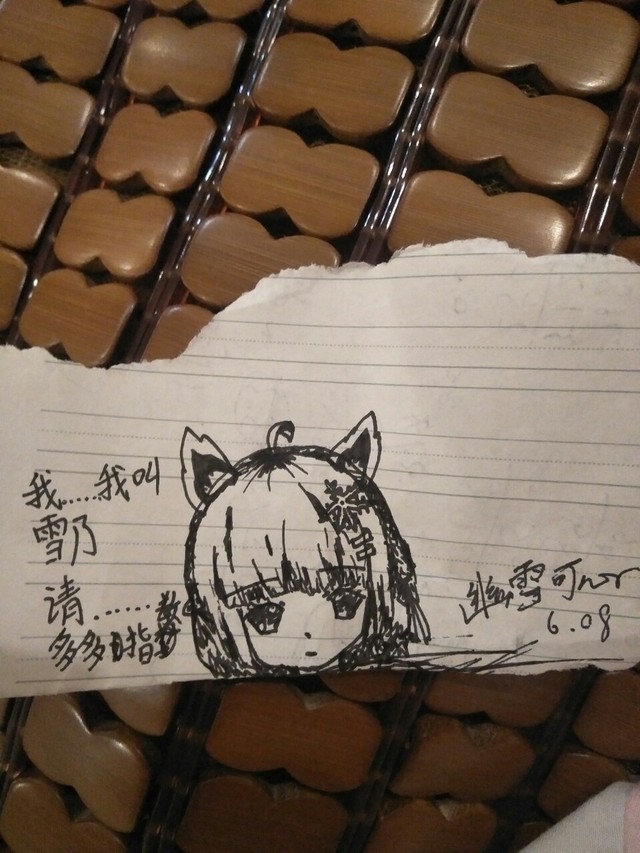 我……我叫
雪乃
请……
多多指教
幽雪可
6.08